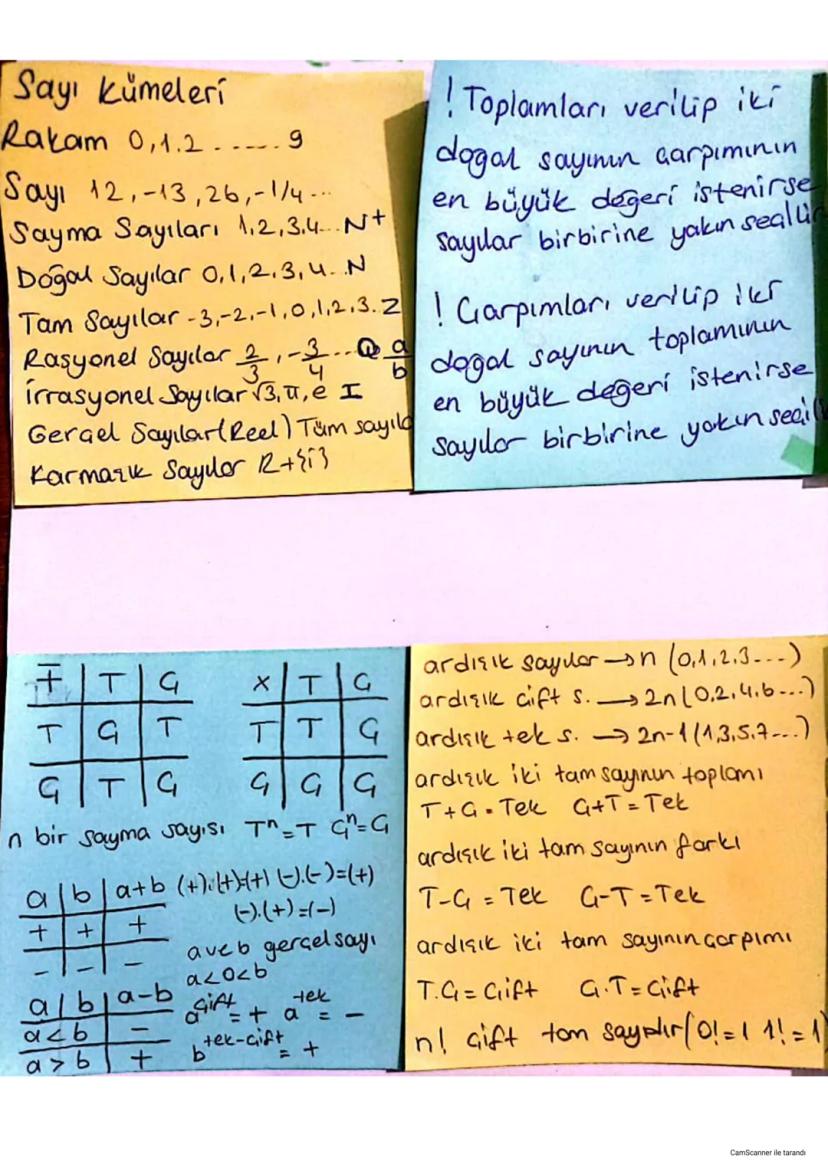 Sayı Kümeleri
Rakam 0,1.2 ...... 9
Sayı 12, -13, 26, -1/4 ...
Sayma Sayıları 1,2,3,4... N+
Doğal Sayılar 0,1,2,3,4..N
Tam Sayılar -3,-2,-1,0,1,2,3. Z
Rasyonel Sayılar 2/3, -3/4 ... Q a/b
İrrasyonel Sayılar √3, π, e I
Gerçel Sayılar (Reel) Tüm
Karmaşık Sayılar R+{i}
! Toplamları verilip iki
doğal sayının çarpımının
en büyük değeri istenirse
sayılar birbirine yakın
! Çarpımları verilip iki
doğal sayının toplamının
en büyük değeri istenirse
sayılar birbirine yakın
∓ | T | Ç
T | Ç | T
Ç | T | Ç
x | T | Ç
T | T | Ç
Ç | Ç | Ç
n bir sayma sayısı Tⁿ=T Çⁿ=Ç
a | b | a+b
+ | + | +
- | - | -
(+).(+)=(+) (-).(-)=(+)
(-).(+)=(-)
a ve b gerçel sayı
a<0<b
a | b | a-b
a<b | -
a>b | +
a^çift = + a^tek = -
b^tek-çift = +
ardışık sayılar → n (0,1,2,3...)
ardışık çift s. → 2n (0,2,4,6...)
ardışık tek s. → 2n-1 (1,3,5,7...)
ardışık iki tam sayının toplamı
T+Ç = Tek Ç+T = Tek
ardışık iki tam sayının farkı
T-Ç = Tek Ç-T = Tek
ardışık iki tam sayının çarpımı
T.Ç = Çift Ç.T = Çift
n! çift tam sayıdır (0!=1 1!=1)
CamScanner ile tarandı